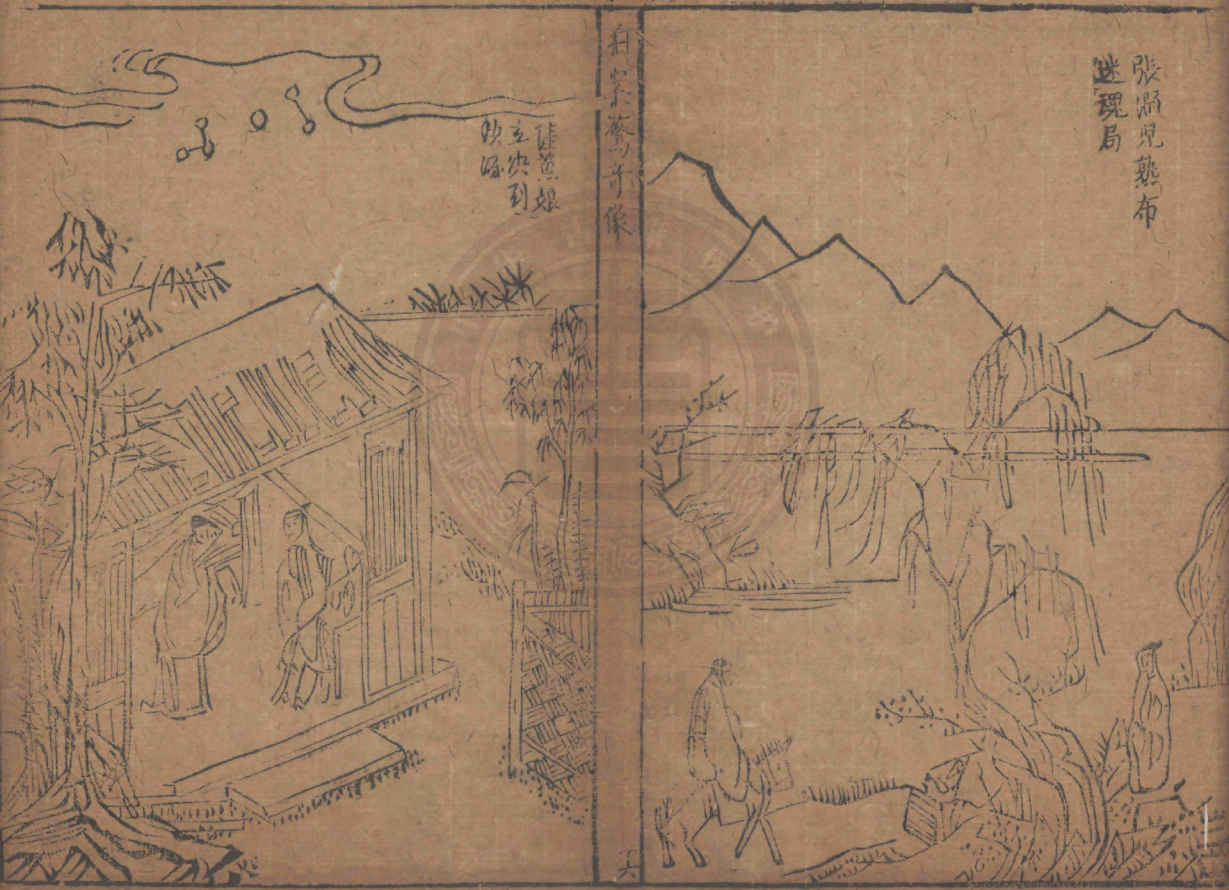 張溜兒熟布
迷魂局
拍案驚奇像
十六
陸蕙娘
立决到
頭緣